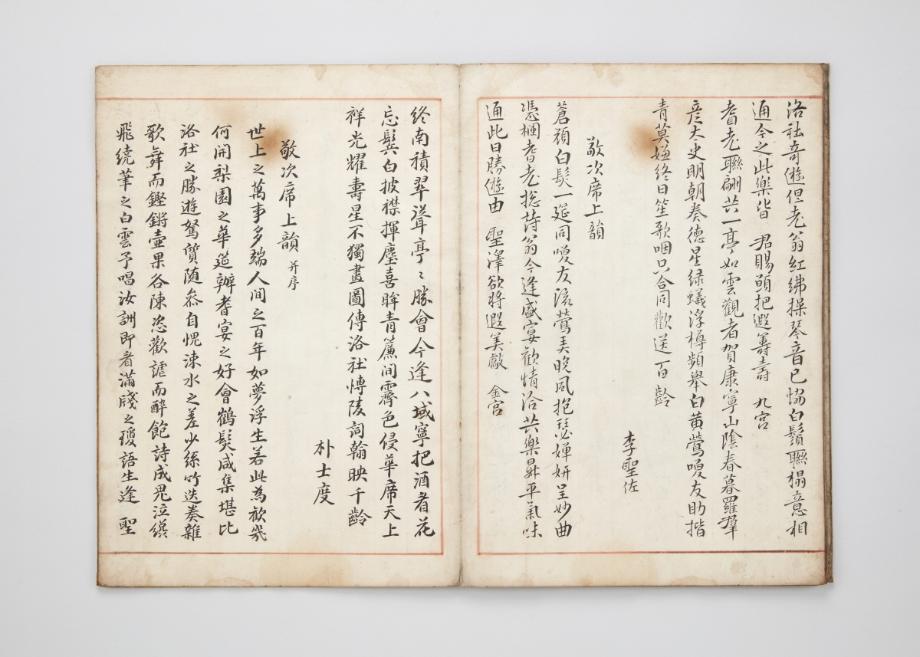 洛社奇遊但老翁紅拂操琴音已恊白鬚聯榻意相
通今之此樂皆 君賜頭把遐籌壽 九宮
耆老聯翩共一亭如雲觀者賀康寧山陰春暮羅羣
彦大史明朝奏德星綠蟻浮樽頻擧白黃鶯喚友助揩
青莫嫌終日笙歌咽只合同歡送百齡
李聖佐
敬次席上韻
蒼顔白髮一筵同喚友流鶯美晩風抱瑟嬋姸呈妙曲
憑欄耆老揔詩翁今逢盛宴歡情洽共樂昇平氣味
通此日勝遊由 聖澤欲將遐美敵 金宮
終南積翠聳亭〻勝會今逢八域寧把酒看花
忘鬂白披襟揮麈喜眸靑簾間霽色侵華席天上
祥光耀壽星不獨畫圖傳洛社慱陵詞翰映千齡
朴士度
敬次席上韻 并序
世上之萬事多端人間之百年如夢浮生若此為歡幾
何開梨園之華筵辦耆宴之好會鶴髮咸集堪比
洛社之勝遊駑質随叅自愧涑水之差少絲竹迭奏雜
歌舞而鏗鏘壷果各陳恣歡謔而醉飽詩成
飛繞筆之白雲予唱汝訓即看滿牋之瓊語生逢 聖